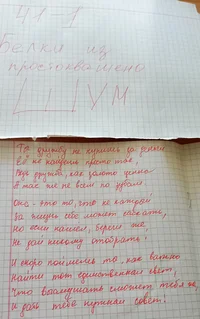 41-1
Белки из
простоквашено
ШУМ
Ту дружбу не купишь за деньги
Её не найдёшь просто так,
Ведь дружба, как золото ценна
И нас не всем по зубам.
Она - это то, что не каждый
За жизнь себе может сыскать,
Но если нашёл, береги же
Не дай никому отобрать!
И скоро поймешь то, как важно
Найти тот единственный свет,
Что выслушать сможет тебя
И даст тебе нужный совет!